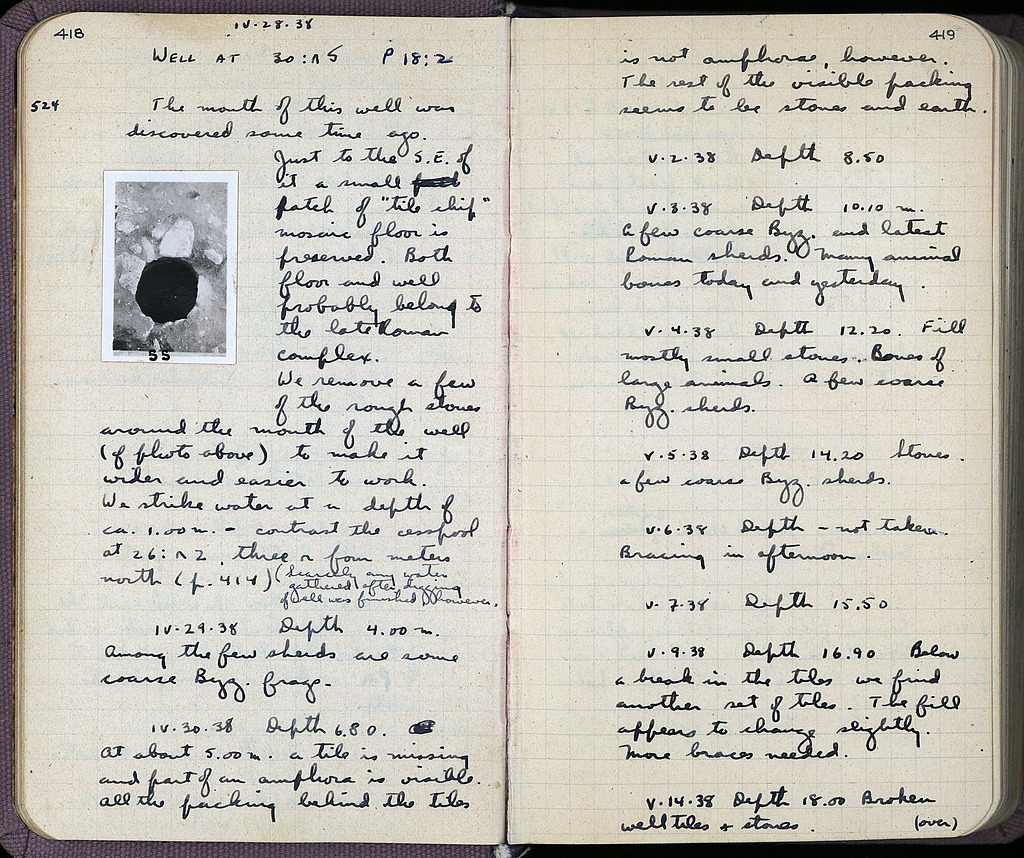 418
IV·28·38
WELL AT 30:ΛS P 18:2
524
The mouth of this well was
discovered some time ago.
Just to the S.E. of
it a small
patch of "tile chip"
mosaic floor is
preserved. Both
floor and well
probably belong to
the late Roman
complex.
55
We remove a few
of the rough stones
around the mouth of the well
(cf photo above) to make it
wider and easier to work.
We strike water at a depth of
ca. 1.00 m. - contrast the cesspool
at 26:Λ2, three or four meters
north (p. 414) (Scarcely any water
gathered after digging
of well was finished, however.
IV·29·38 Depth 4.00 m.
Among the few sherds are some
coarse Byz. frags.
IV·30·38 Depth 6.80.
At about 5.00 m. a tile is missing
and part of an amphora is visible.
All the packing behind the tiles
419
is not amphorae, however.
The rest of the visible packing
seems to be stones and earth.
V·2·38 Depth 8.50
V·3·38 Depth 10.10 m.
A few coarse Byz. and latest
Roman sherds. Many animal
bones today and yesterday.
V·4·38 Depth 12.20. Fill
mostly small stones. Bones of
large animals. A few coarse
Byz. sherds.
V·5·38 Depth 14.20 Stones.
a few coarse Byz. sherds.
V·6·38 Depth - not taken.
Bracing in afternoon.
V·7·38 Depth 15.50
V·9·38 Depth 16.90 Below
a break in the tiles we find
another set of tiles. The fill
appears to change slightly.
More braces needed.
V·14·38 Depth 18.00 Broken
well tiles + stones. (over)